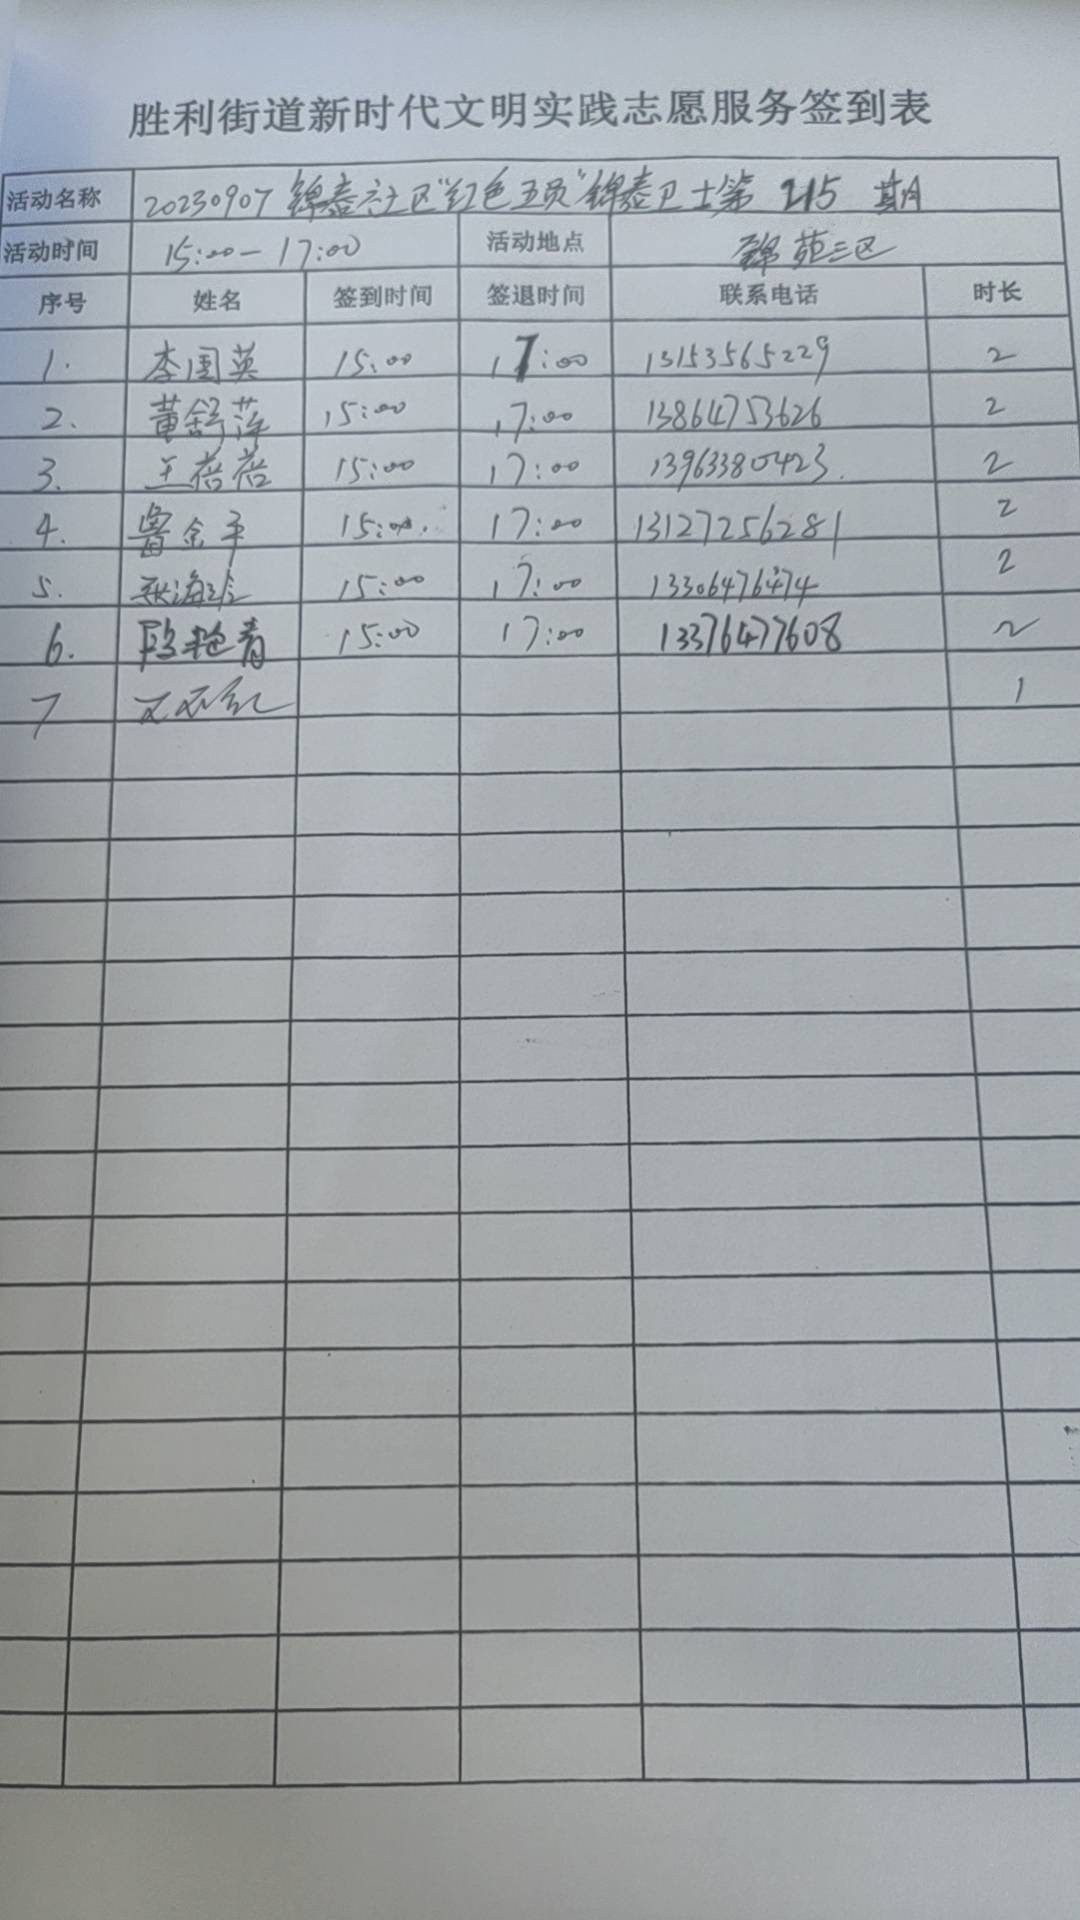 胜利街道新时代文明实践志愿服务签到表
活动名称 20230907 锦泰社区"红色五员"锦泰卫士第 215 期
活动时间 15:00-17:00 活动地点 锦苑三区
序号 姓名 签到时间 签退时间 联系电话 时长
1. 李国英 15:00 17:00 13153565229 2
2. 黄舒萍 15:00 17:00 13864753626 2
3. 王蓓蓓 15:00 17:00 13963380423. 2
4. 鲁金平 15:00. 17:00 13127256281 2
5. 张海珍 15:00 17:00 13306476474 2
6. 段艳青 15:00 17:00 13376477608 2
7 1